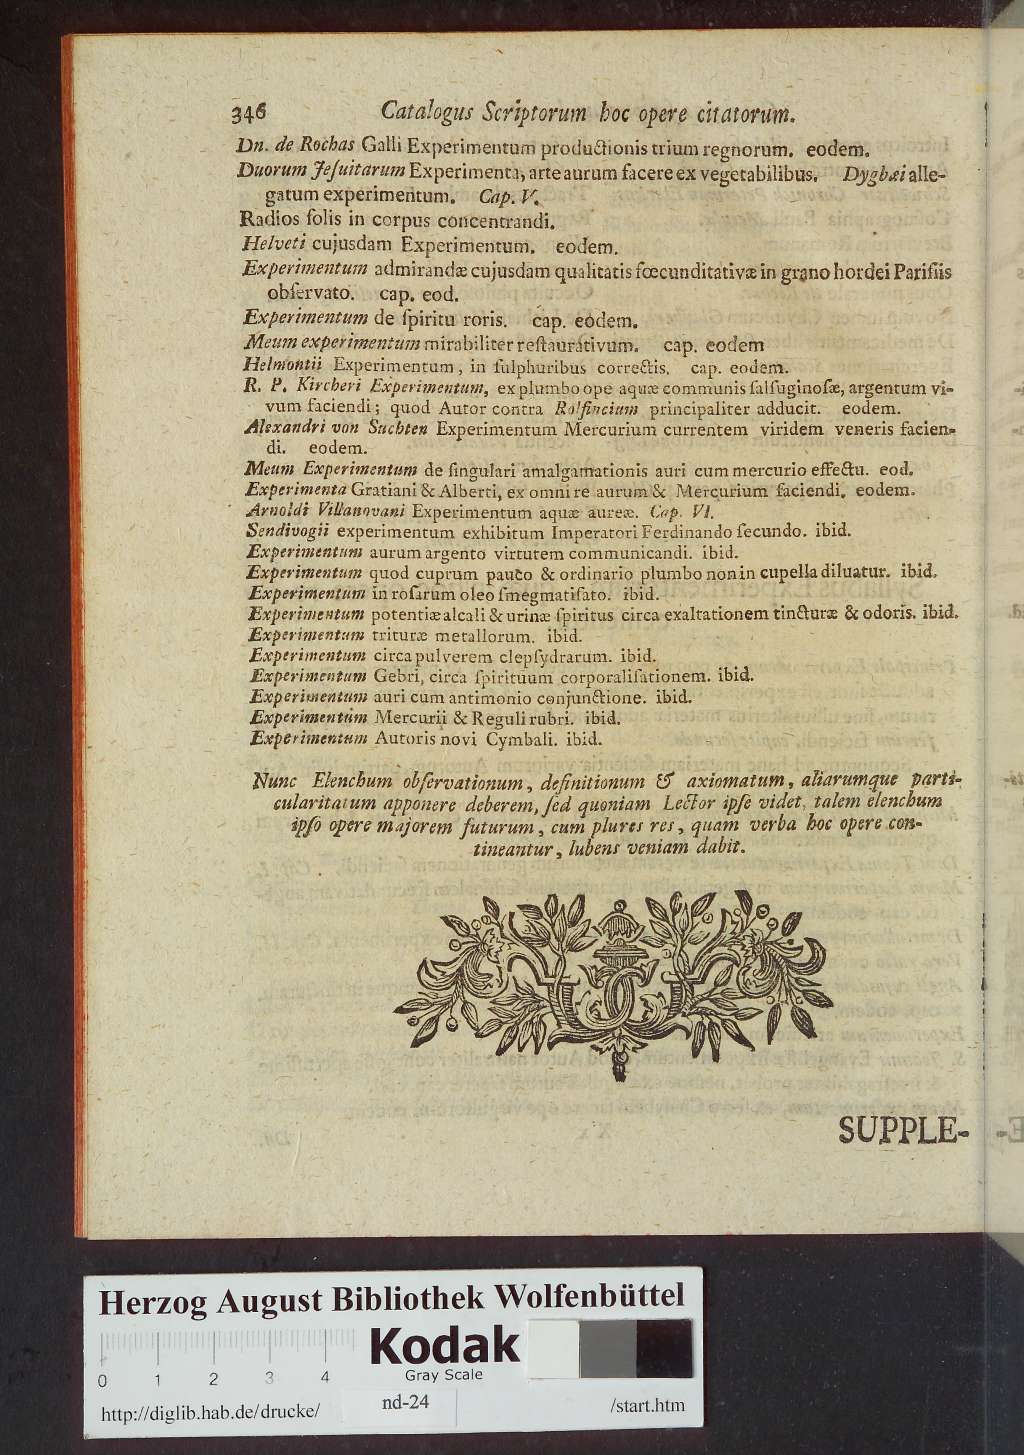 346 Catalogus Scriptorum hoc opere citatorum.
Dn. de Rochas Galli Experimentum productionis trium regnorum. eodem.
Duorum Jeſuitarum Experimenta, arte aurum facere ex vegetabilibus. Dygbæi alle-
gatum experimentum. Cap. V.
Radios ſolis in corpus concentrandi.
Helveti cujusdam Experimentum. eodem.
Experimentum admirandæ cujusdam qualitatis fœcunditativæ in grano hordei Pariſiis
obſervato. cap. eod.
Experimentum de ſpiritu roris. cap. eodem.
Meum experimentum mirabiliter reſtaurativum. cap. eodem
Helmontii Experimentum, in ſulphuribus correctis. cap. eodem.
R. P. Kircheri Experimentum, ex plumbo ope aquæ communis ſalſuginoſæ, argentum vi-
vum faciendi; quod Autor contra Rolfincium principaliter adducit. eodem.
Alexandri von Suchten Experimentum Mercurium currentem viridem veneris facien-
di. eodem.
Meum Experimentum de ſingulari amalgamationis auri cum mercurio effectu. eod.
Experimenta Gratiani & Alberti, ex omni re aurum & Mercurium faciendi. eodem.
Arnoldi Villanovani Experimentum aquæ aureæ. Cap. VI.
Sendivogii experimentum exhibitum Imperatori Ferdinando ſecundo. ibid.
Experimentum aurum argento virtutem communicandi. ibid.
Experimentum quod cuprum pauco & ordinario plumbo non in cupella diluatur. ibid.
Experimentum in roſarum oleo ſmegmatiſato. ibid.
Experimentum potentiæ alcali & urinæ ſpiritus circa exaltationem tincturæ & odoris. ibid.
Experimentum trituræ metallorum. ibid.
Experimentum circa pulverem clepſydrarum. ibid.
Experimentum Gebri, circa ſpirituum corporaliſationem. ibid.
Experimentum auri cum antimonio conjunctione. ibid.
Experimentum Mercurii & Reguli rubri. ibid.
Experimentum Autoris novi Cymbali. ibid.
Nunc Elenchum obſervationum, definitionum & axiomatum, aliarumque parti-
cularitatum apponere deberem, ſed quoniam Lector ipſe videt, talem elenchum
ipſo opere majorem futurum, cum plures res, quam verba hoc opere con-
tineantur, lubens veniam dabit.
SUPPLE-
Herzog August Bibliothek Wolfenbüttel
Kodak
Gray Scale
0 1 2 3 4
http://diglib.hab.de/drucke/ nd-24 /start.htm